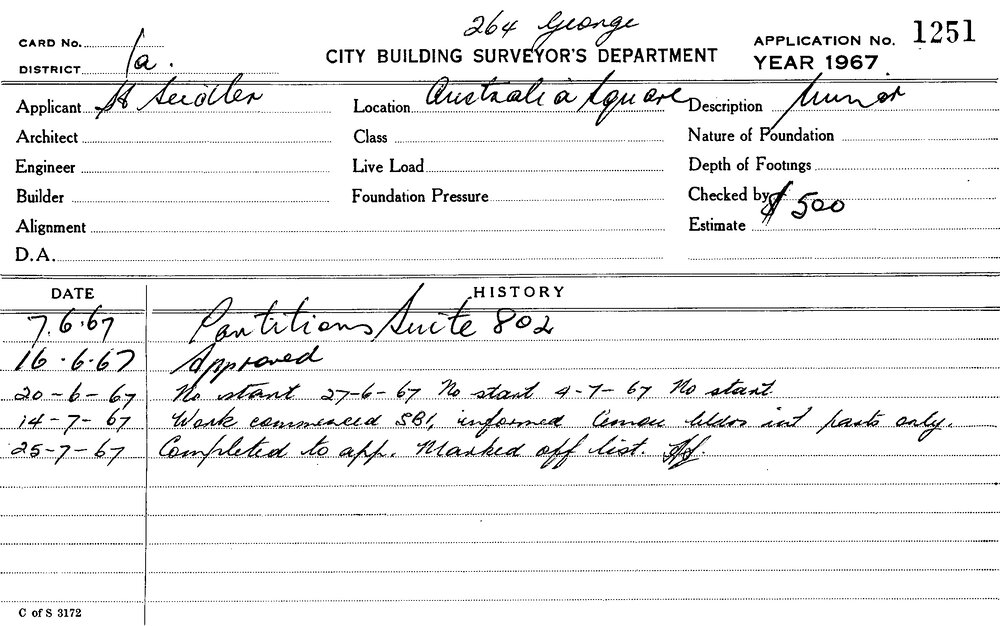 264 George
CARD No.
CITY BUILDING SURVEYOR'S DEPARTMENT
APPLICATION No. 1251
DISTRICT 1a.
YEAR 1967
Applicant H Seidler
Location Australia Square
Description Minor
Architect
Class
Nature of Foundation
Engineer
Live Load
Depth of Footings
Builder
Foundation Pressure
Checked by
Alignment
Estimate $500
D.A.
DATE
HISTORY
7.6.67 Partitions Suite 802
16.6.67 Approved
20-6-67 No start 27-6-67 No start 4-7-67 No start
14-7-67 Work commenced SB1, informed bldrs int parts only.
25-7-67 Completed to app. Marked off list.
C of S 3172